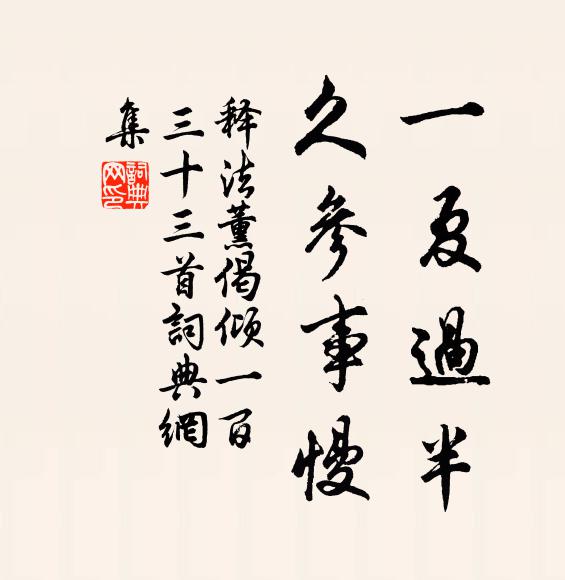 一夏過半
久參事慢
释法薰偈傾一百
三十三首詞典網
集
詞典網印